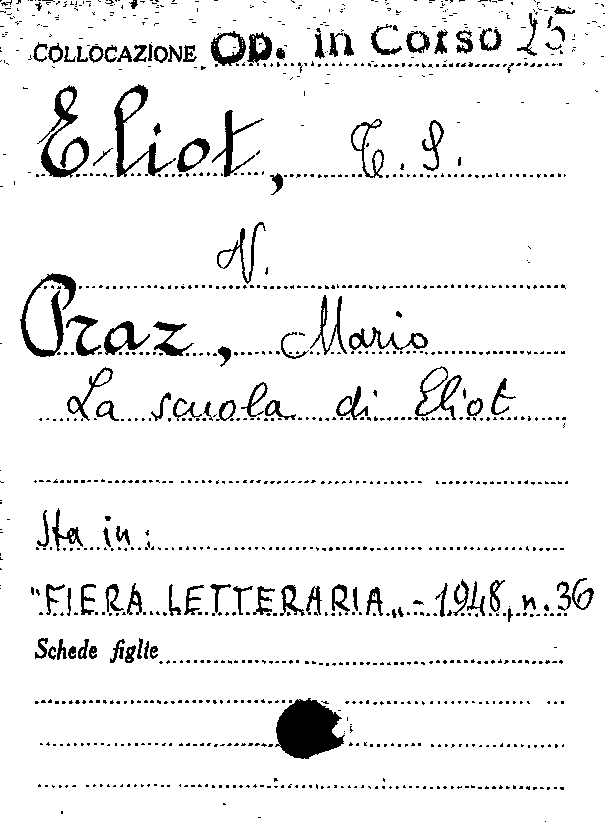 COLLOCAZIONE OD. in Corso 25
Eliot, T. S.
V.
Praz, Mario
La scuola di Eliot
Sta in:
"FIERA LETTERARIA„ - 1948, n. 36
Schede figlie